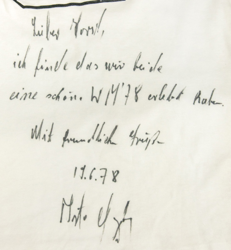 Lieber Horst,
ich finde das wir beide
eine schöne WM'78 erlebt haben.
Mit freundlich Grüßen
19.6.78